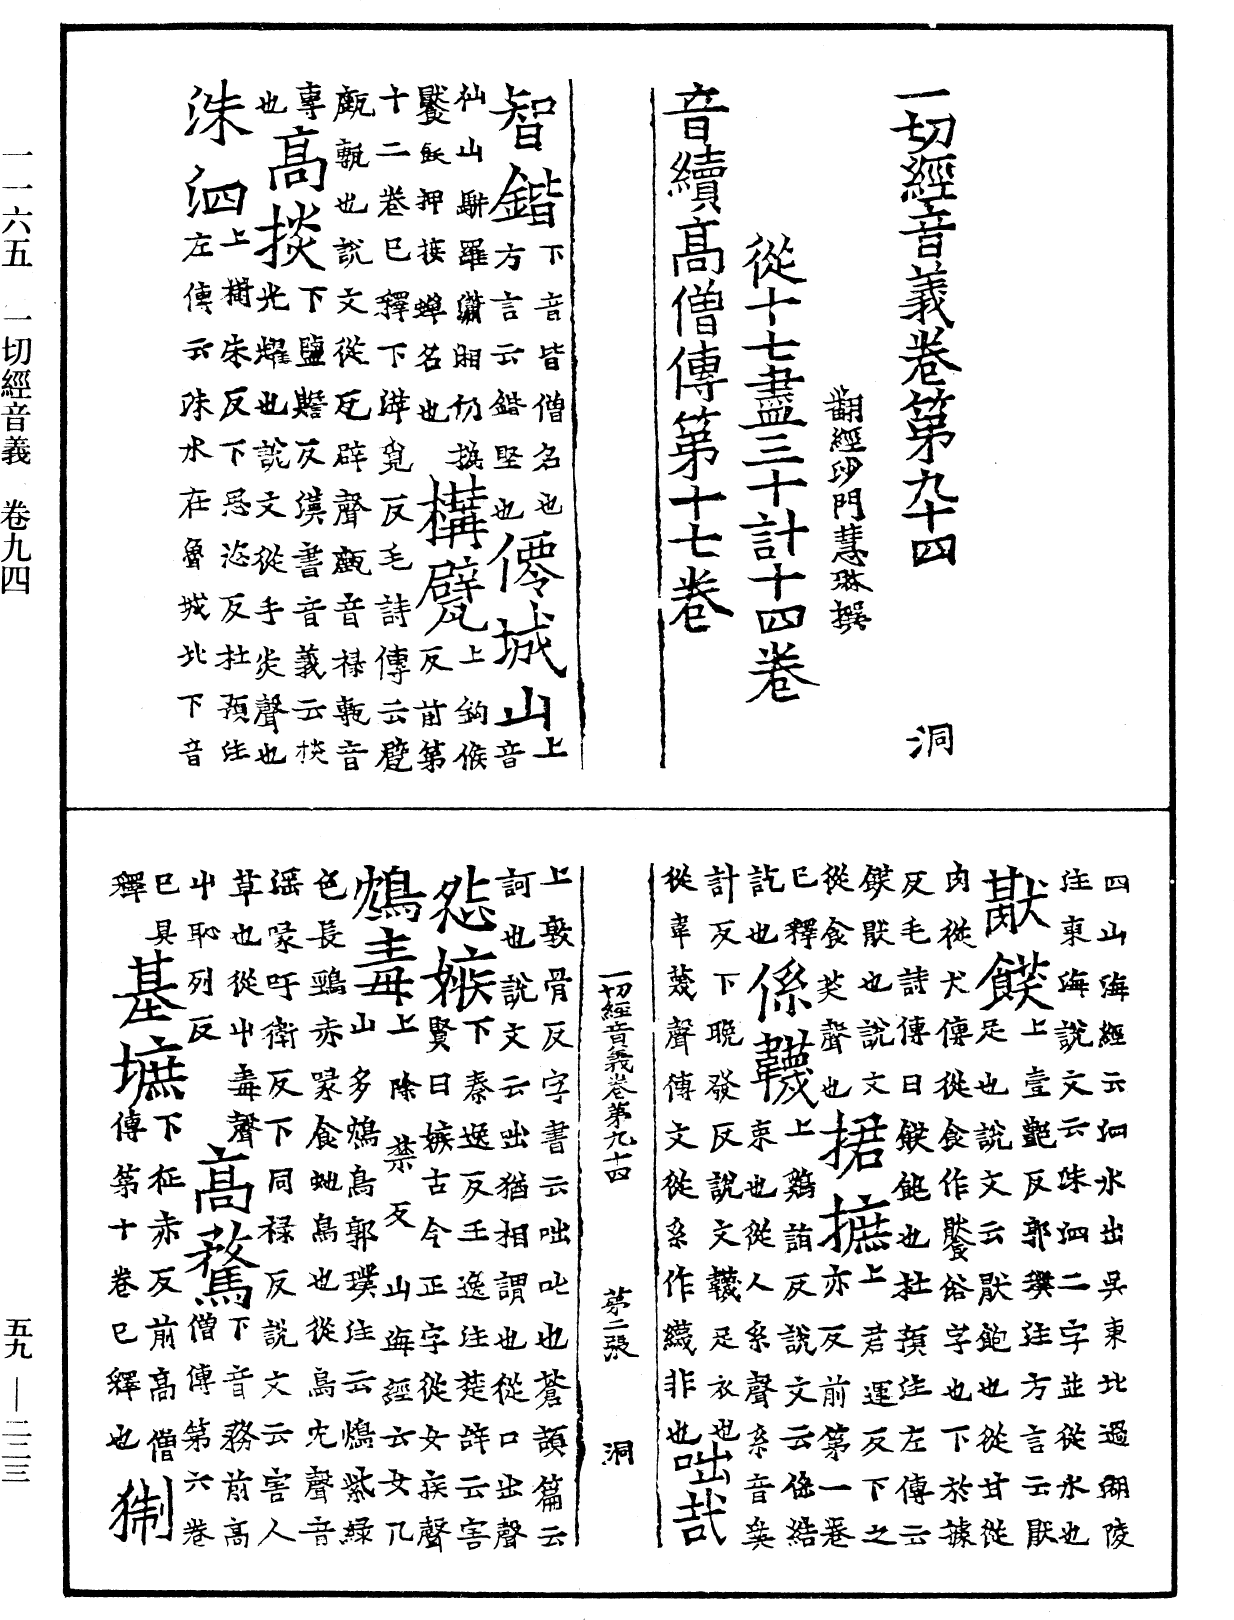 一切經音義卷第九十四　洞
翻經沙門慧琳撰
從十七盡三十計十四卷
音續高僧傳第十七卷
智鍇下音皆僧名也方言云鍇堅也僊城山上音
仙山羅
上鉤候反前第
十二卷已釋下瓶覓反毛詩傳云甓
瓴甋也說文從瓦辟聲瓴音祿甋音
專也高掞下鹽贍反漢書音義云掞
光耀也說文從手炎聲也
洙泗上樹朱反下思恣反杜預注
左傳云洙水在魯城北下音
四山海經云泗水出吳東北過湖陵
注東海說文云洙泗二字並從水也
猒飫上壹豔反郭璞注方言云猒
足也說文云猒飽也從甘從
肉從犬傳從食作饜俗字也下於據
反毛詩傳曰飫飽也杜預注左傳云
飫猒也說文
從食芺聲也捃摭上君運反下之
亦反前第一卷
已釋訖也係韈上雞詣反說文云係結
束也從人系聲系音奚
計反下晚發反說文韈足衣也
從韋蔑聲傳文從糸作䌩非也咄哉
一切經音義卷第九十四　第二張　洞
上敦骨反字書云咄叱也蒼頡篇云
訶也說文云咄猶相謂也從口出聲
怨嫉下秦逸反王逸注楚辭云害
賢曰嫉古今正字從女疾聲
鴆毒上除禁反山海經云女几
山多鴆鳥郭璞注云鴆紫綠
色長頸赤喙食蛇鳥也從鳥冘聲音
滛喙吁衛反下同祿反說文云害人
草也從屮毒聲高騖下音務前高
僧傳第六卷
屮恥列反
已具釋墓墌下征亦反前高僧
傳第十卷已釋也猘
一一六五　一切經音義　卷九四
五九—二二三